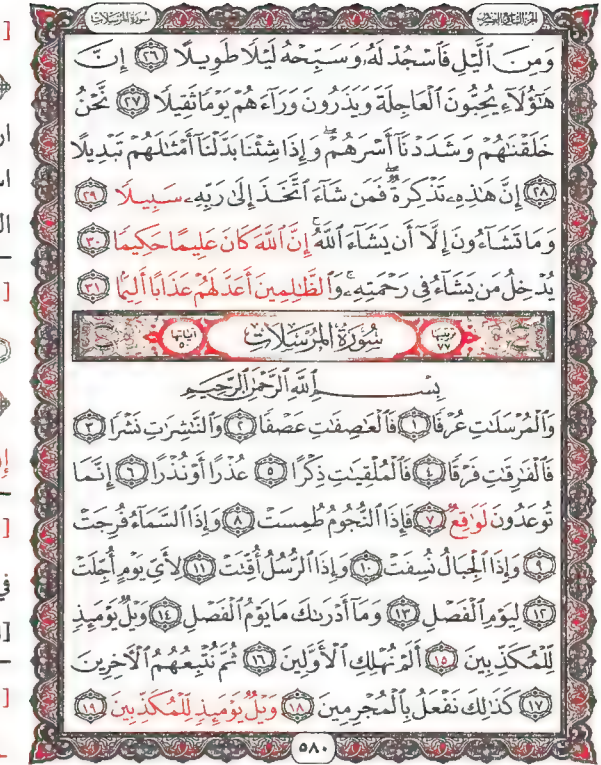 سورة المرسلات
الجزء التاسع والعشرون
وَمِنَ ٱلَّيْلِ فَٱسْجُدْ لَهُۥ وَسَبِّحْهُ لَيْلًا طَوِيلًا ٢٦ إِنَّ
هَٰٓؤُلَآءِ يُحِبُّونَ ٱلْعَاجِلَةَ وَيَذَرُونَ وَرَآءَهُمْ يَوْمًا ثَقِيلًا ٢٧ نَّحْنُ
خَلَقْنَٰهُمْ وَشَدَدْنَآ أَسْرَهُمْ ۖ وَإِذَا شِئْنَا بَدَّلْنَآ أَمْثَٰلَهُمْ تَبْدِيلًا
٢٨ إِنَّ هَٰذِهِۦ تَذْكِرَةٌ ۖ فَمَن شَآءَ ٱتَّخَذَ إِلَىٰ رَبِّهِۦ سَبِيلًا ٢٩
وَمَا تَشَآءُونَ إِلَّآ أَن يَشَآءَ ٱللَّهُ ۚ إِنَّ ٱللَّهَ كَانَ عَلِيمًا حَكِيمًا ٣٠
يُدْخِلُ مَن يَشَآءُ فِى رَحْمَتِهِۦ ۚ وَٱلظَّٰلِمِينَ أَعَدَّ لَهُمْ عَذَابًا أَلِيمًا ٣١
ترتيبها ٧٧ سُورَةُ المُرْسَلَات آياتها ٥٠
بِسْمِ ٱللَّهِ ٱلرَّحْمَٰنِ ٱلرَّحِيمِ
وَٱلْمُرْسَلَٰتِ عُرْفًا ١ فَٱلْعَٰصِفَٰتِ عَصْفًا ٢ وَٱلنَّٰشِرَٰتِ نَشْرًا ٣
فَٱلْفَٰرِقَٰتِ فَرْقًا ٤ فَٱلْمُلْقِيَٰتِ ذِكْرًا ٥ عُذْرًا أَوْ نُذْرًا ٦ إِنَّمَا
تُوعَدُونَ لَوَٰقِعٌ ٧ فَإِذَا ٱلنُّجُومُ طُمِسَتْ ٨ وَإِذَا ٱلسَّمَآءُ فُرِجَتْ
٩ وَإِذَا ٱلْجِبَالُ نُسِفَتْ ١٠ وَإِذَا ٱلرُّسُلُ أُقِّتَتْ ١١ لِأَىِّ يَوْمٍ أُجِّلَتْ
١٢ لِيَوْمِ ٱلْفَصْلِ ١٣ وَمَآ أَدْرَىٰكَ مَا يَوْمُ ٱلْفَصْلِ ١٤ وَيْلٌ يَوْمَئِذٍ
لِّلْمُكَذِّبِينَ ١٥ أَلَمْ نُهْلِكِ ٱلْأَوَّلِينَ ١٦ ثُمَّ نُتْبِعُهُمُ ٱلْءَاخِرِينَ
١٧ كَذَٰلِكَ نَفْعَلُ بِٱلْمُجْرِمِينَ ١٨ وَيْلٌ يَوْمَئِذٍ لِّلْمُكَذِّبِينَ ١٩
٥٨٠